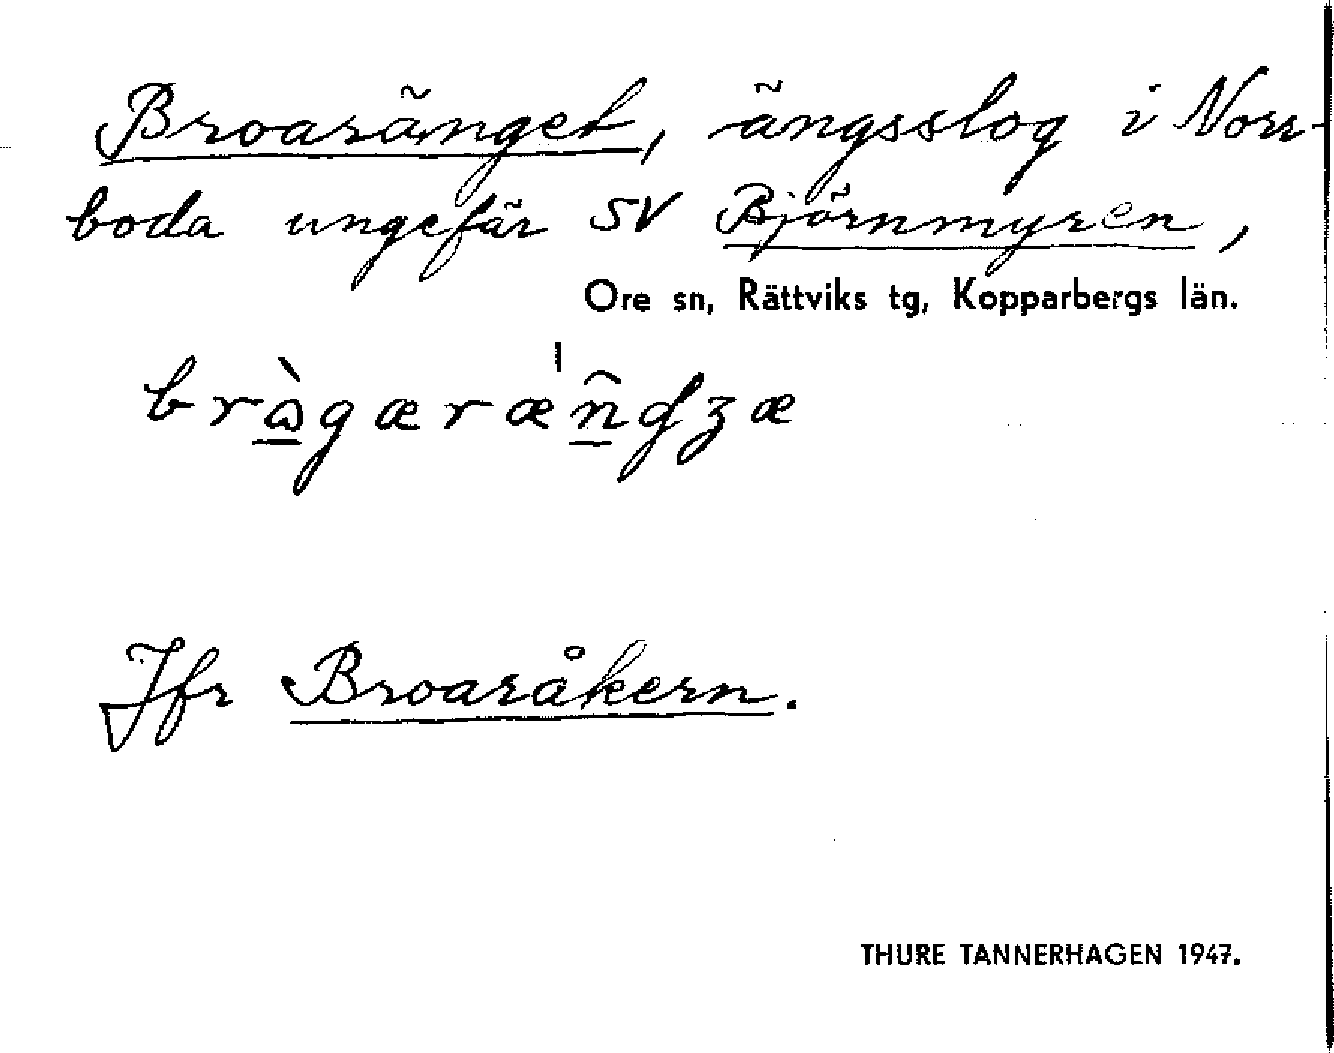 Broaränget, ängsslog i Norr-
boda ungefär SV Björnmyren,
Ore sn, Rättviks tg, Kopparbergs län.
Jfr Broaråkern.
THURE TANNERHAGEN 1947.